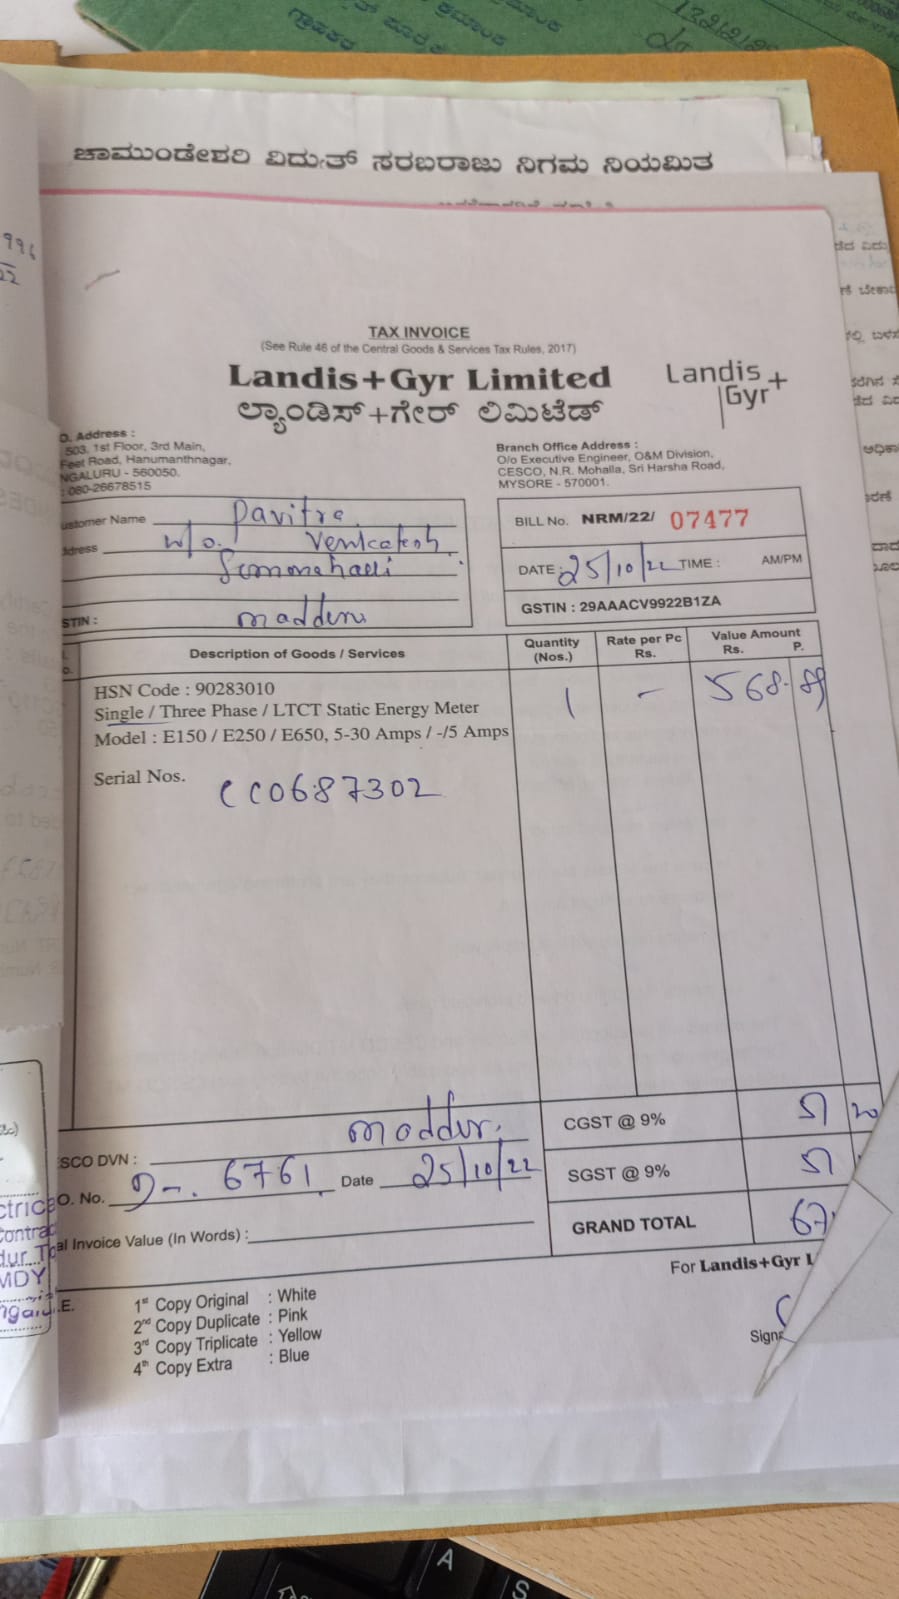 ಚಾಮುಂಡೇಶ್ವರಿ ವಿದ್ಯುತ್ ಸರಬರಾಜು ನಿಗಮ ನಿಯಮಿತ
TAX INVOICE
(See Rule 46 of the Central Goods & Services Tax Rules, 2017)
Landis+Gyr Limited
ಲ್ಯಾಂಡಿಸ್+ಗೇರ್ ಲಿಮಿಟೆಡ್
Landis
Gyr+
O. Address :
503, 1st Floor, 3rd Main,
Feet Road, Hanumanthnagar,
NGALURU - 560050.
: 080-26678515
Branch Office Address :
O/o Executive Engineer, O&M Division,
CESCO, N.R. Mohalla, Sri Harsha Road,
MYSORE - 570001.
ustomer Name Pavitra
ddress w/o. Venkatesh
STIN :
BILL No. NRM/22/ 07477
DATE : 25/10/22 TIME : AM/PM
GSTIN : 29AAACV9922B1ZA
Description of Goods / Services
Quantity (Nos.)
Rate per Pc Rs.
Value Amount Rs. P.
HSN Code : 90283010
Single / Three Phase / LTCT Static Energy Meter
Model : E150 / E250 / E650, 5-30 Amps / -/5 Amps
1 - 568. 89
Serial Nos. CC0687302
CGST @ 9% 51 20
SGST @ 9% 51
GRAND TOTAL 67
SCO DVN : Maddur.
O. No. 6761 Date 25/10/22
al Invoice Value (In Words) :
For Landis+Gyr L
.E.
1st Copy Original : White
2nd Copy Duplicate : Pink
3rd Copy Triplicate : Yellow
4th Copy Extra : Blue
Signa
A
S